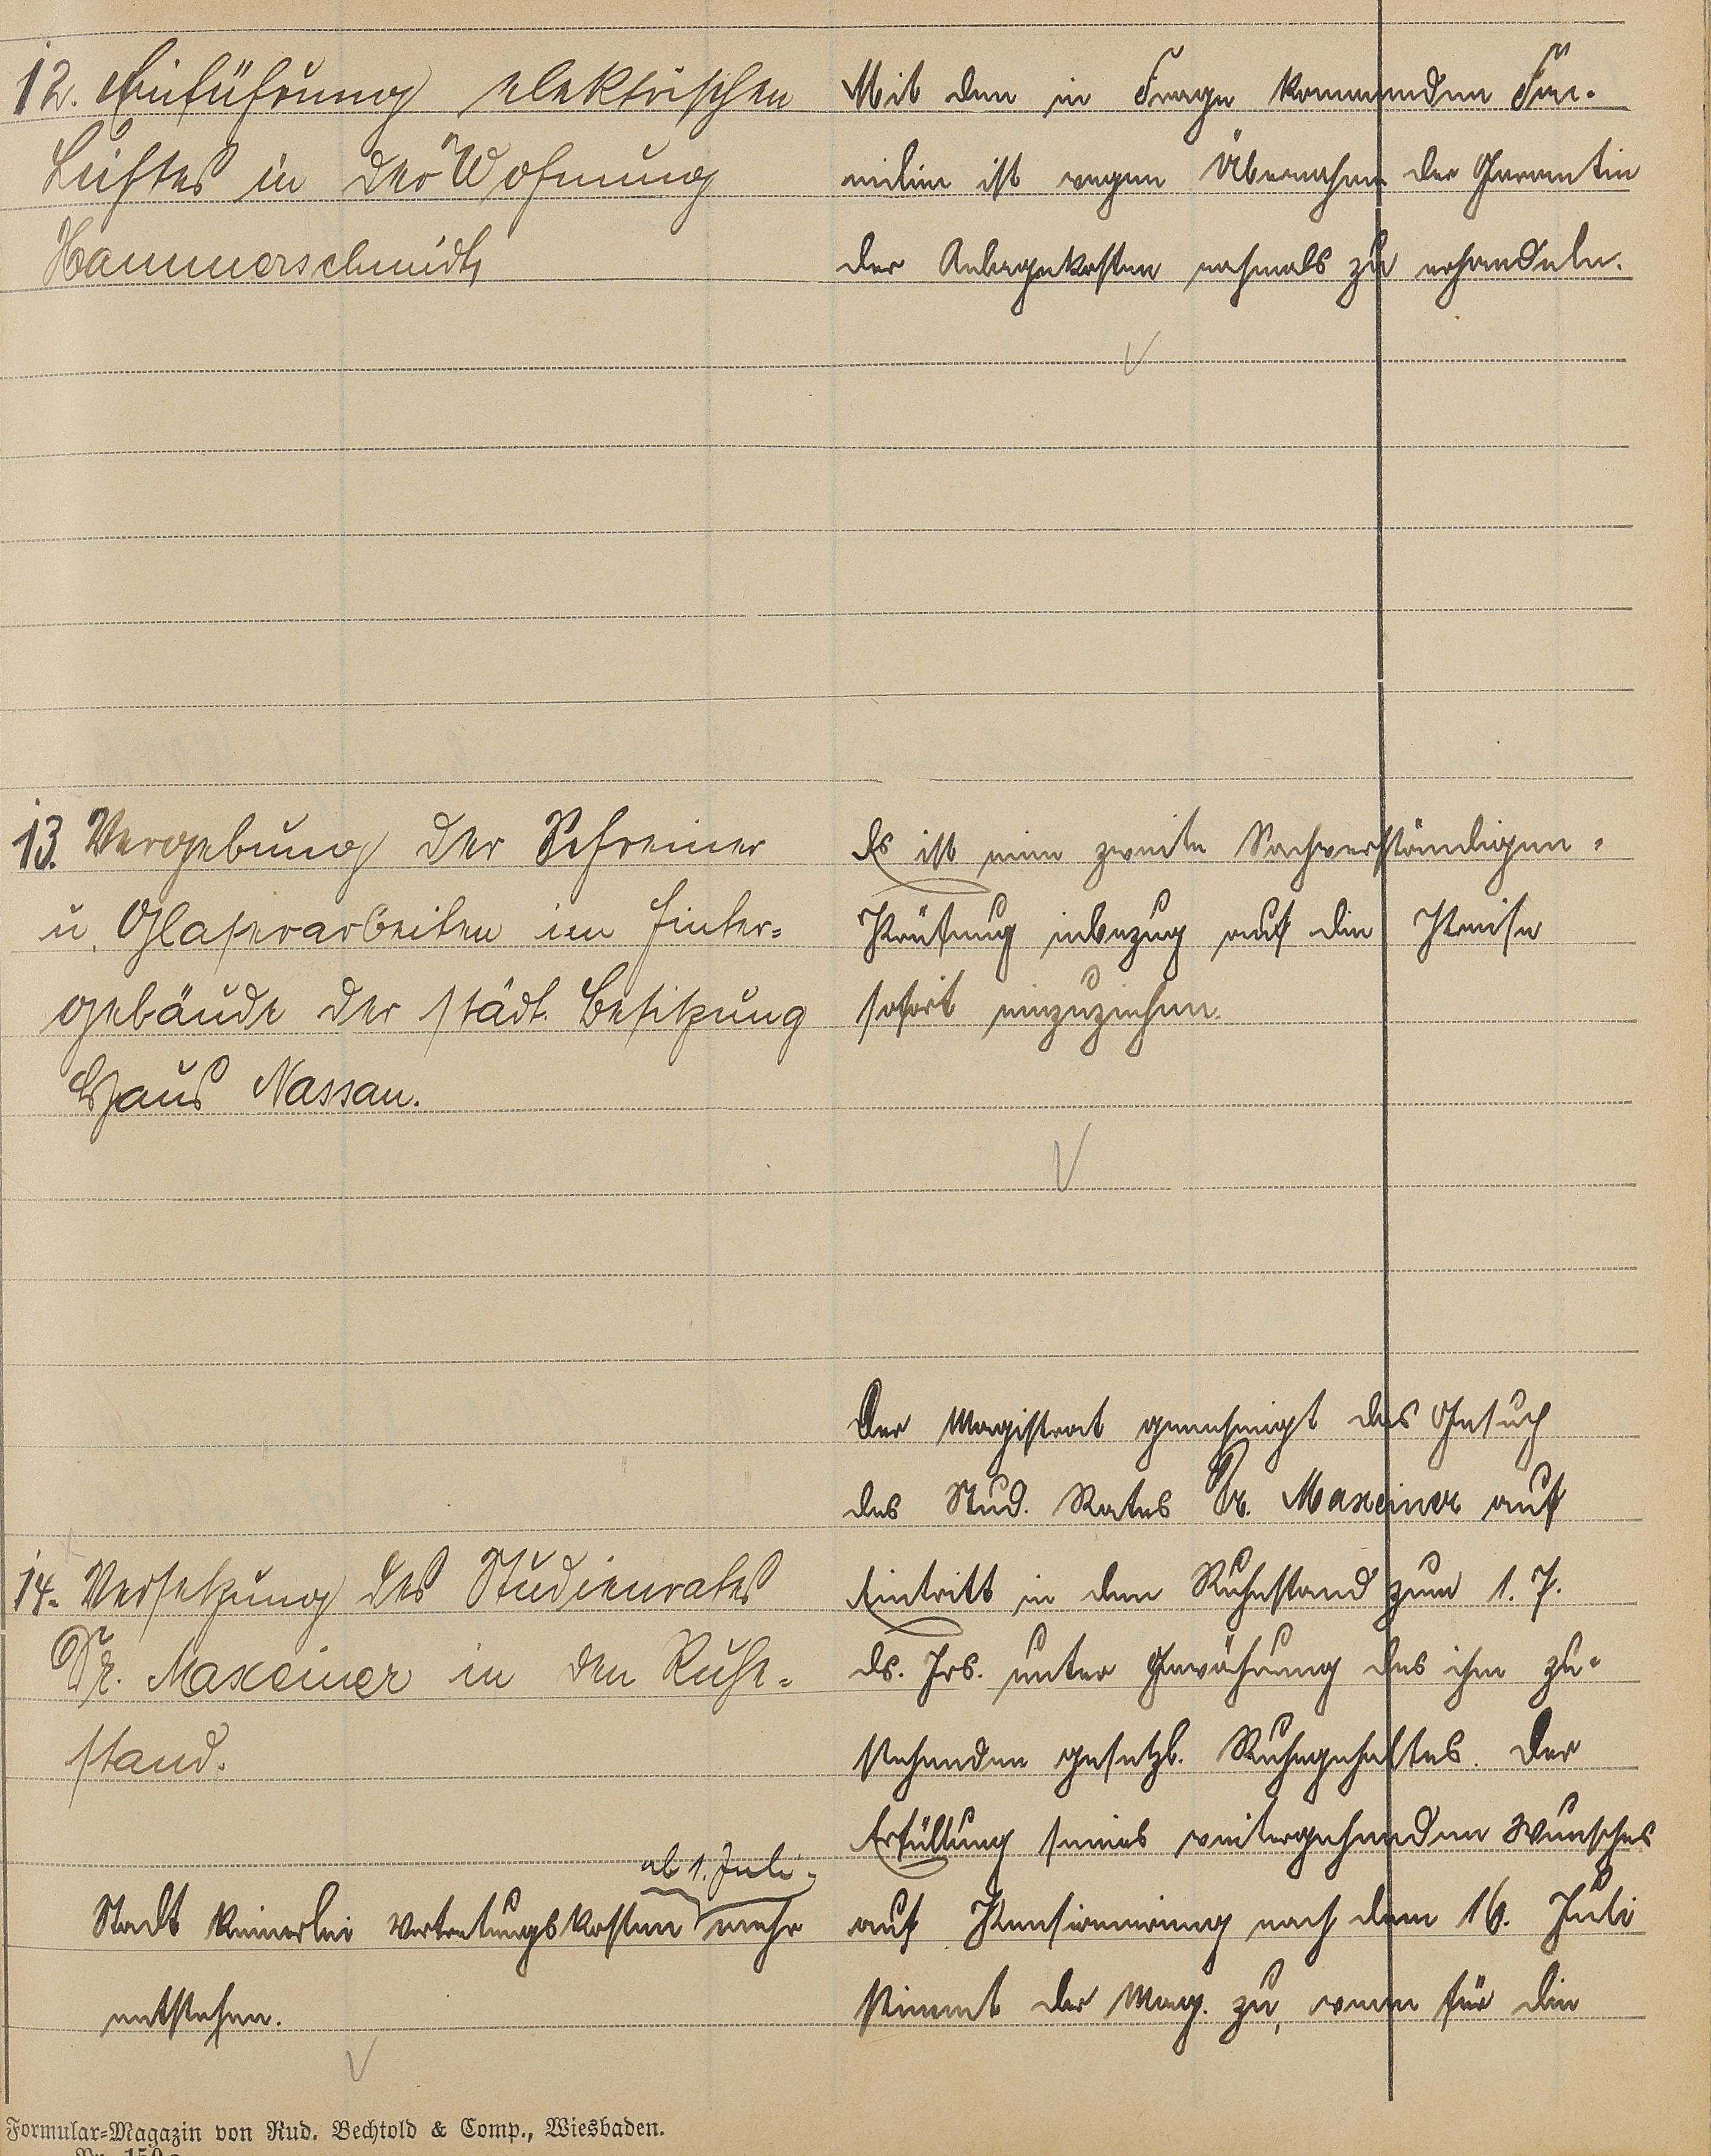 12. Einführung elektrischen
Lichtes in der Wohnung
Hammerschmidt,
Mit den in Frage kommenden Fa-
milien ist wegen Übernahme der Garantie
der Anlagekosten nochmals zu verhandeln.
13. Vergebung der Schreiner
u. Glaserarbeiten im Hinter-
gebäude der städt. Besitzung
Haus Nassau.
Es ist eine zweite Sachverständigen-
Prüfung inbezug auf die Preise
sofort einzuziehen.
14. Versetzung des Studienrates
Dr. Maxeiner in den Ruhe-
stand.
Der Magistrat genehmigt das Gesuch
des Stud. Rates Dr. Maxeiner auf
Eintritt in den Ruhestand zum 1. 7.
ds. Jrs. unter Gewährung des ihm zu-
stehenden gesetzl. Ruhegehaltes. Der
Erfüllung seines weitergehenden Wunsches
auf Pensionierung nach dem 16. Juli
stimmt der Mag. zu, wenn für die
ab 1. Juli
Stadt keinerlei Vertretungskosten mehr
entstehen.
Formular-Magazin von Rud. Bechtold & Comp., Wiesbaden.